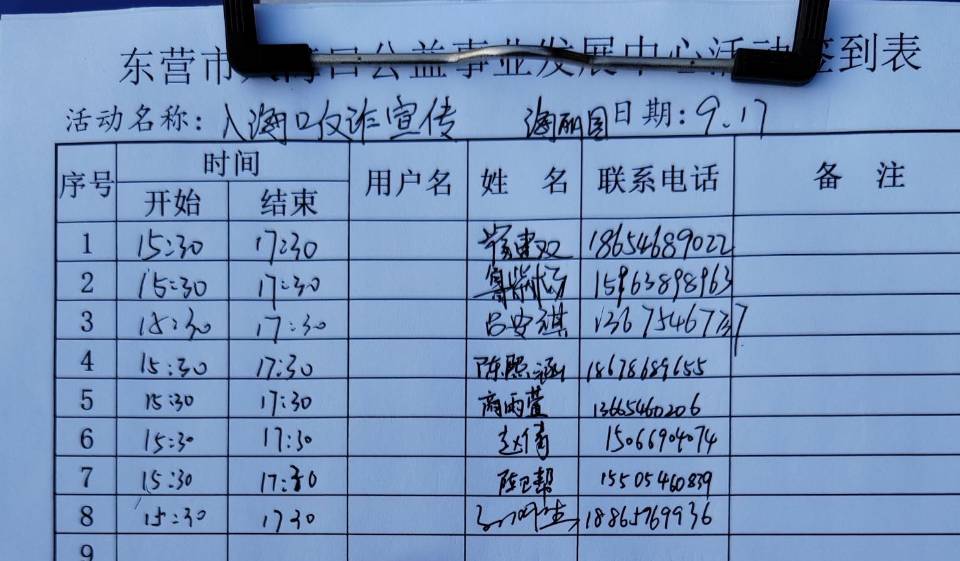 东营市入海口公益事业发展中心活动签到表
活动名称：入海口反诈宣传 海丽园 日期：9.17
序号 时间 用户名 姓名 联系电话 备注
开始 结束
1 15:30 17:30 18654689022
2 15:30 17:30 15963898963
3 15:30 17:30 吕安祺
4 15:30 17:30 陈熙涵 18678689655
5 15:30 17:30 商雨萱 13665460206
6 15:30 17:30 赵倩 15066904074
7 15:30 17:30 陈卫帮 15505460839
8 15:30 17:30 18865769936
9